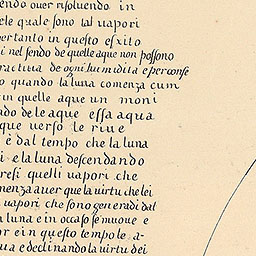 endo ouer risoluendo in
ele quale sono tal uapori
pertanto in questo esxito
i nel fondo de quelle aque non possono
ractiua de ogni humidita e per conse
o quando la luna comenza cum
in quelle aque un moni
ado de le aque essa aqua
que uerso le riue
è dal tempo che la luna
i e la luna descendando
resi quelli uapori che
menza auer que la uirtu che lei
uapori che sono generadi dal
a luna e in occaso se muoue e
or e in questo tempo le a-
ua e declinando la uirtu dei